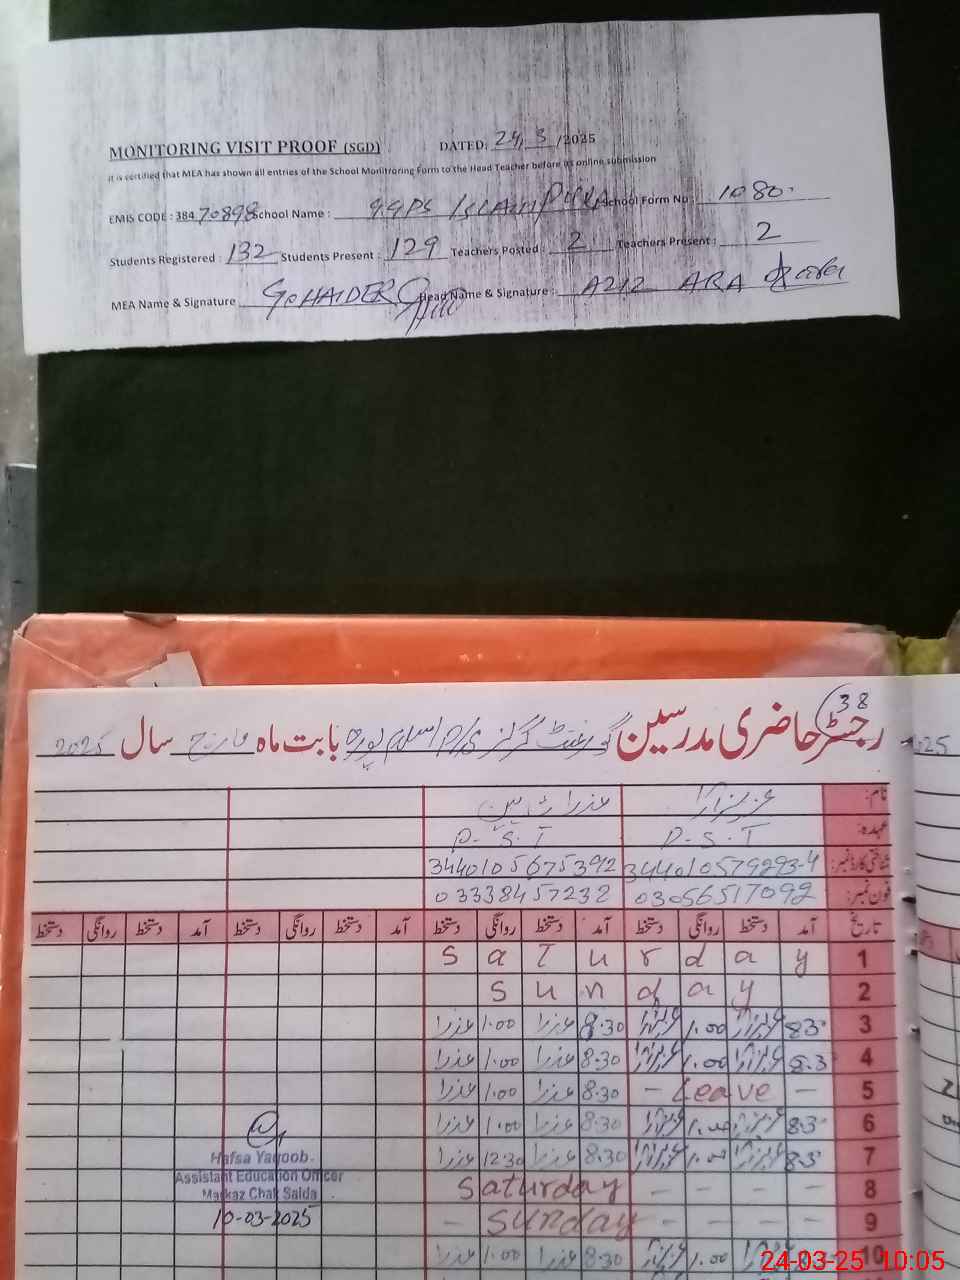 MONITORING VISIT PROOF (SGD) DATED: 24, 3 /2025
It is certified that MEA has shown all entries of the School Monitroring Form to the Head Teacher before its online submission
EMIS CODE : 384 70898 School Name : GGPS Islam PURA School Form No : 1080
Students Registered : 132 Students Present : 129 Teachers Posted : 2 Teachers Present : 2
MEA Name & Signature Head Name & Signature : ARA
38
رجسٹر حاضری مدرسین گورنمنٹ گرلز اسلام پورہ بابت ماہ مارچ سال 2025
نام: عزیز آرا عذرا
عہدہ: P.S.T P.S.T
شناختی کارڈ نمبر: 3440105792293-4 3440105675392
فون نمبر: 03056517092 03338457232
تاریخ آمد دستخط روانگی دستخط آمد دستخط روانگی دستخط آمد دستخط روانگی دستخط آمد دستخط روانگی دستخط
1 Saturday
2 Sunday
3 8.3 1.00 8.30 عذرا 1.00 عذرا
4 8.3 1.00 8.30 عذرا 1.00 عذرا
5 - Leave - 8.30 عذرا 1.00 عذرا
6 8.3 1.00 8.30 عذرا 1.00 عذرا
7 8.3 1.00 8.30 عذرا 12.30 عذرا
8 Saturday - - - -
9 - Sunday - - - -
10 1.00 8.30 عذرا 1.00 عذرا
Hafsa Yaqoob
Assistant Education Officer
Markaz Chak Saida
10-03-2025
24-03-25 10:05